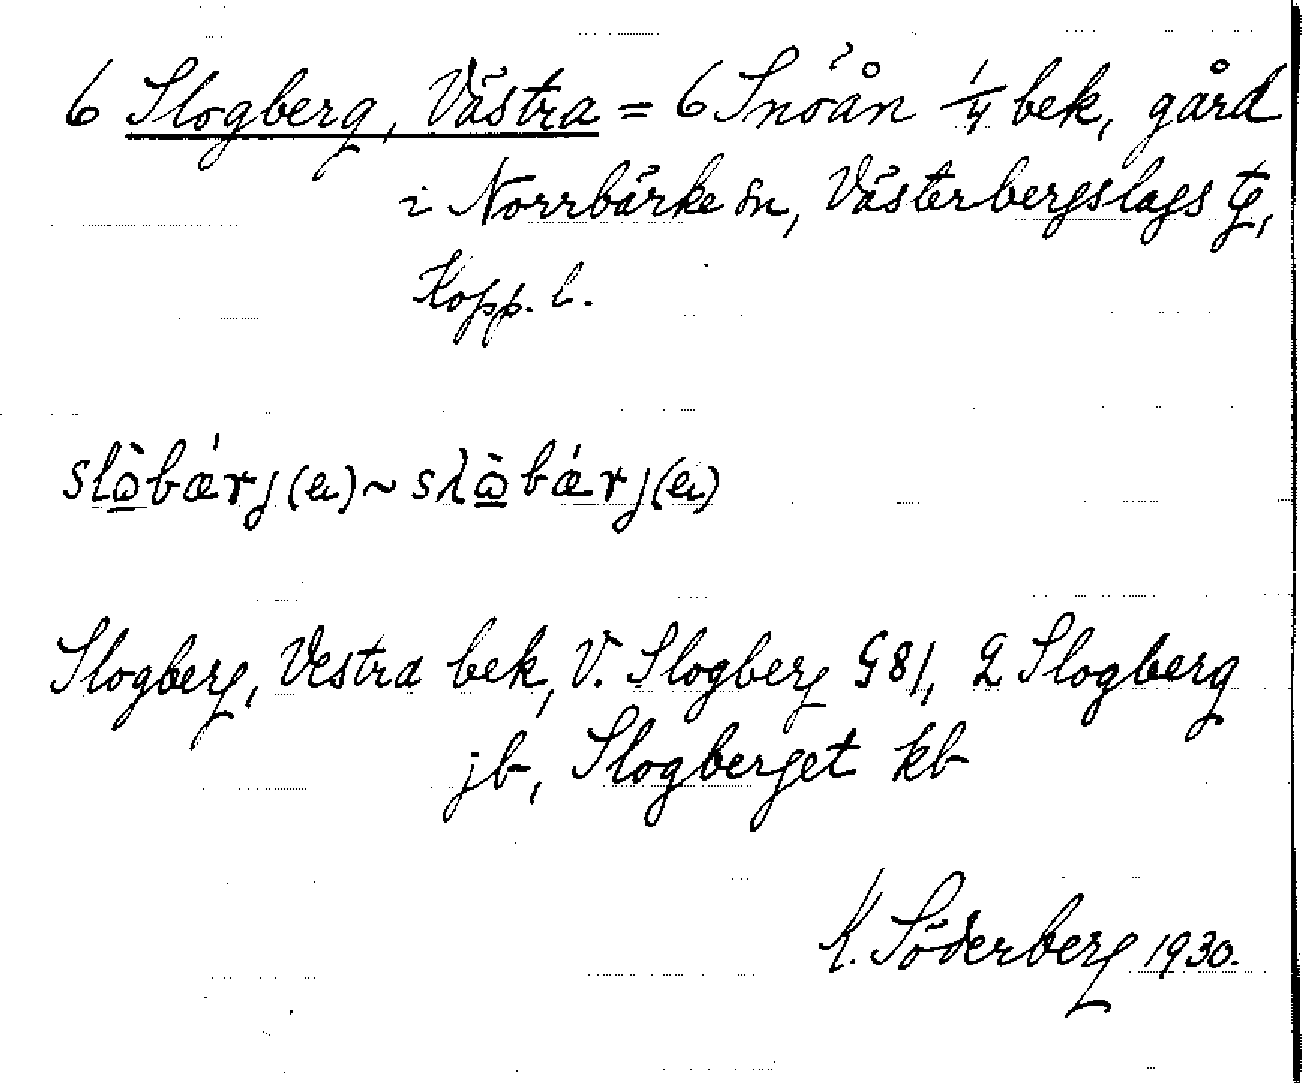 6 Slogberg, Västra = 6 Snöån 1/4 bek, gård
i Norrbärke sn, Västerbergslags tg,
Kopp. l.
slὼ̲bǽrj(a) ~ sλὼ̲bǽrj(a)
Slogberg, Vestra bek, V. Slogberg G81, 2 Slogberg
jb, Slogberget kb
K. Söderberg 1930.